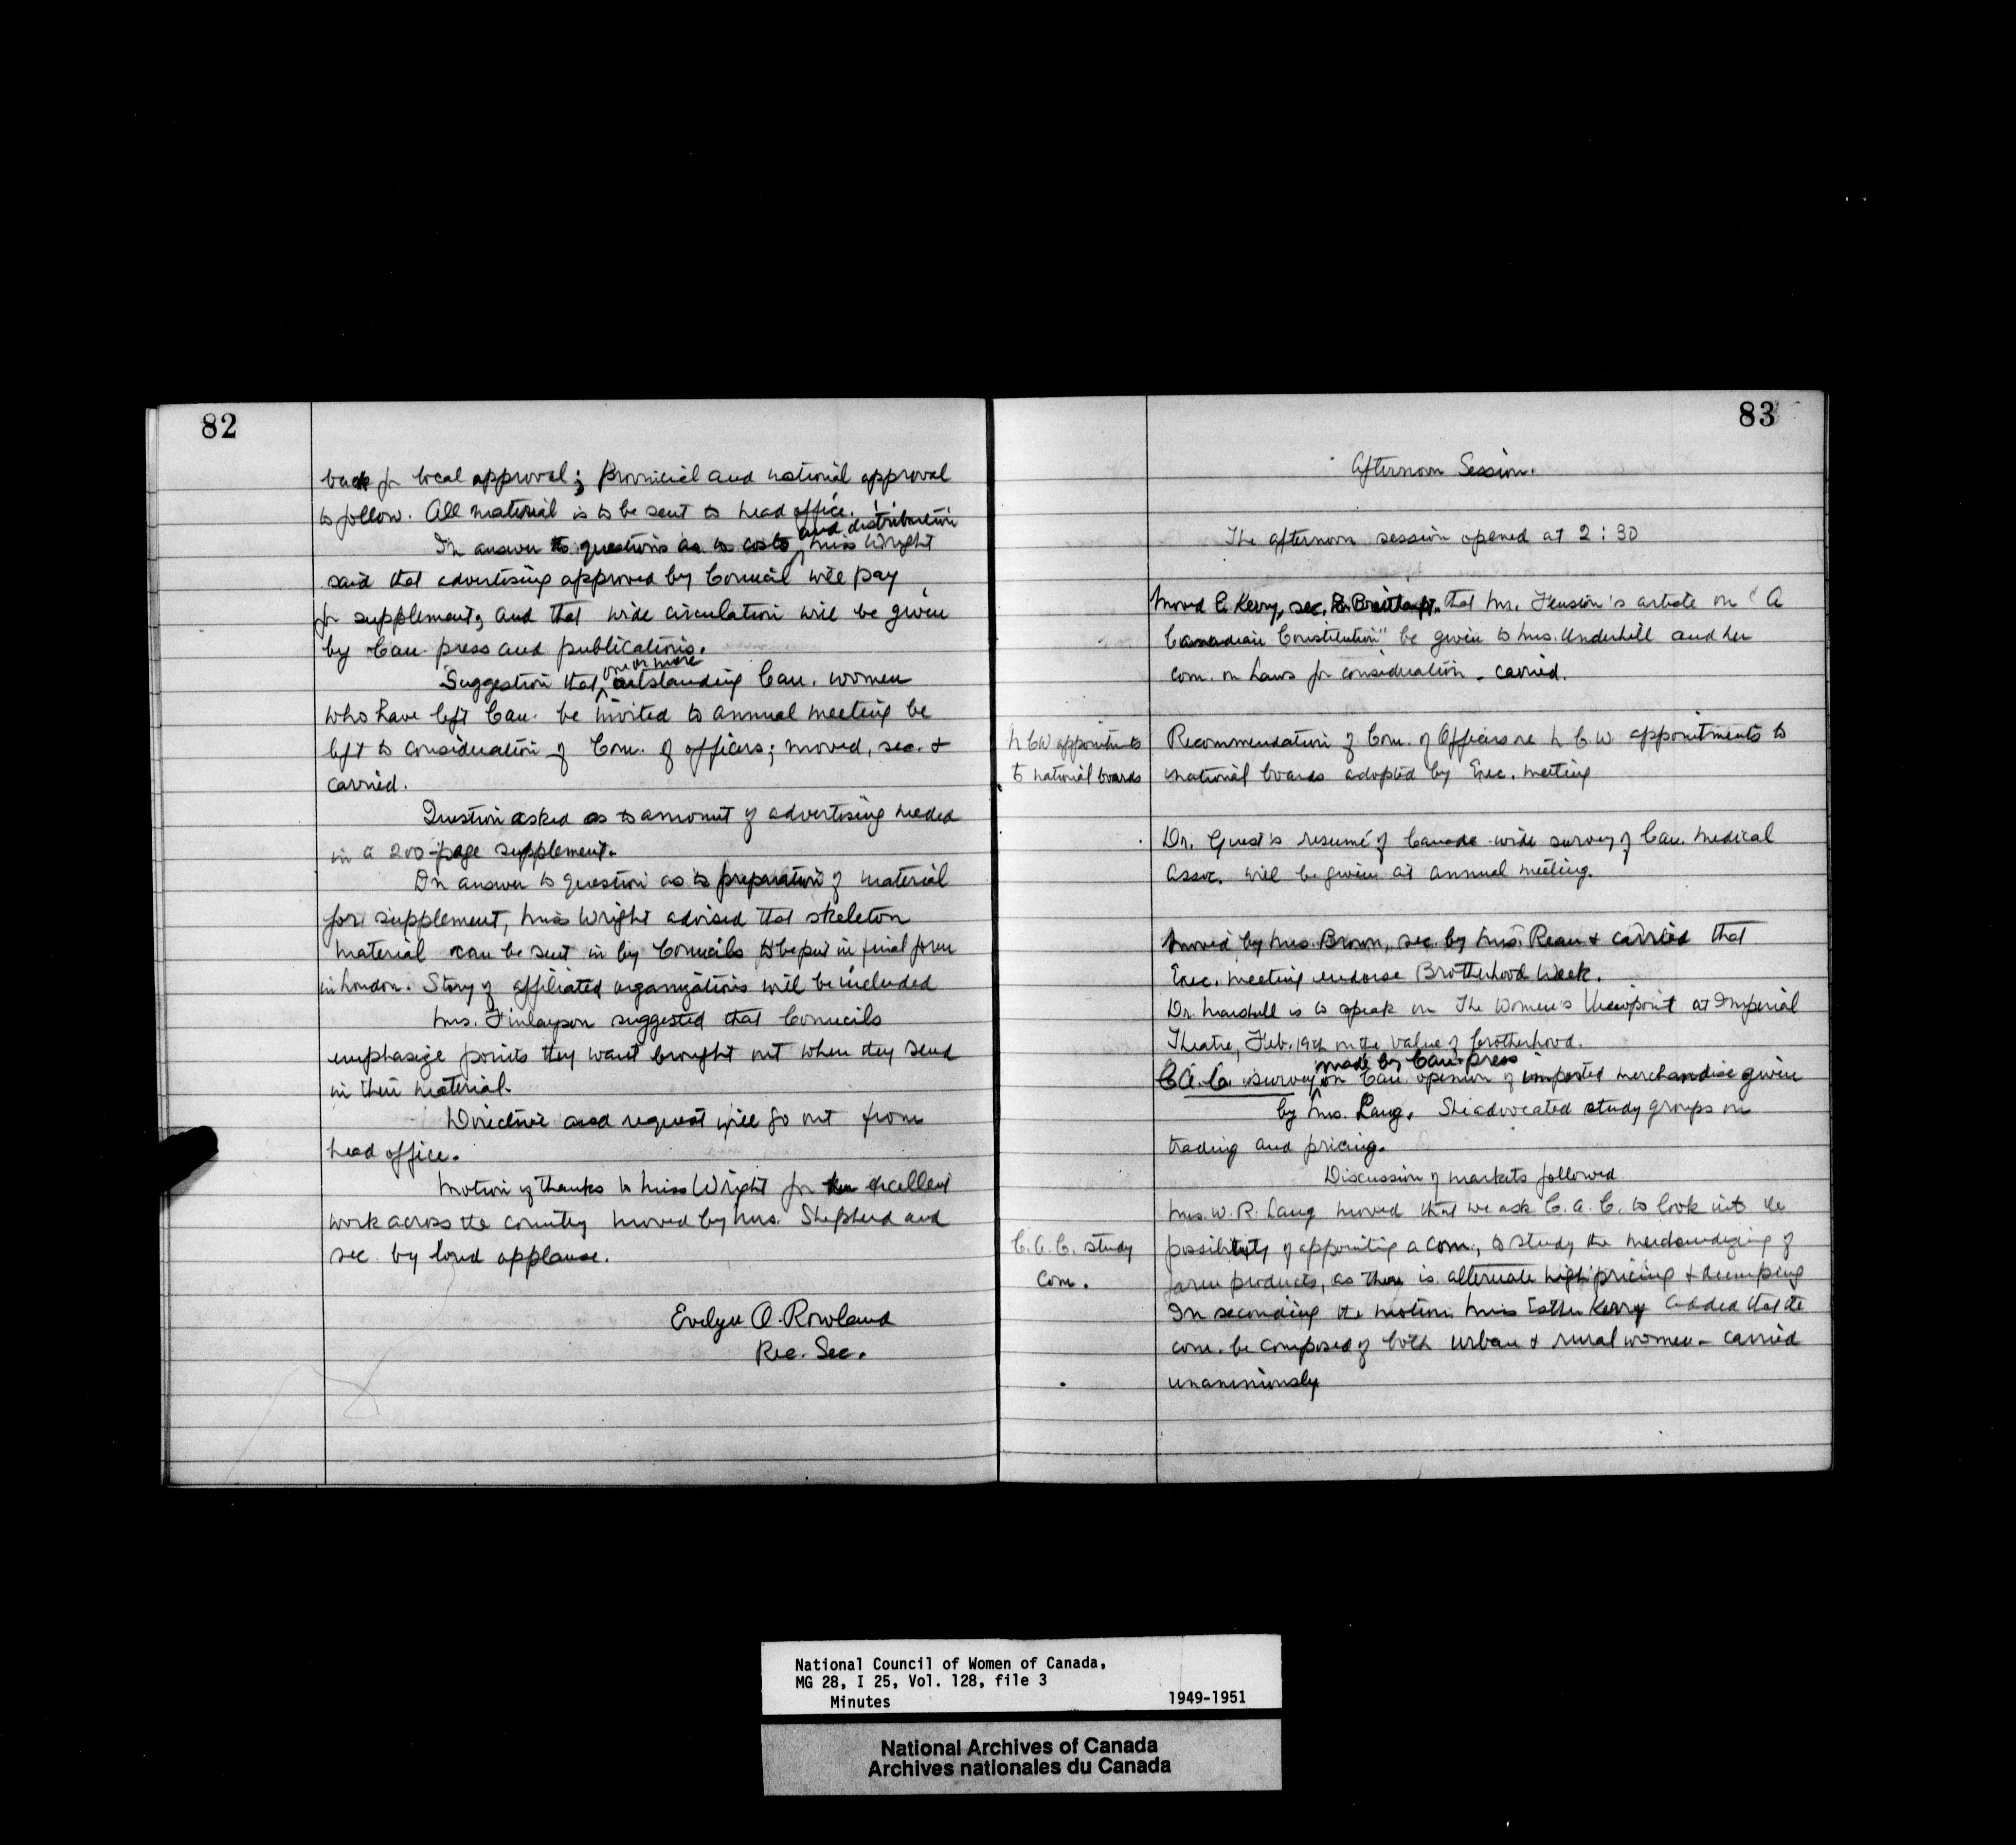 82
back for local approval; Provincial and national approval
to follow. All material is to be sent to head office.
In answer to questions as to costs and distribution Miss Wright
said that advertising approved by Council will pay
for supplement; and that wide circulation will be given
by Can. press and publications.
Suggestion that one or more outstanding Can. women
who have left Can. be invited to annual meeting be
left to consideration of Com. of officers; moved, sec. +
carried.
Question asked as to amount of advertising needed
in a 200-page supplement.
In answer to question as to preparation of material
for supplement, Miss Wright advised that skeleton
material can be sent in by Councils to be put in final form
in London. Story of affiliated organizations will be included
Mrs. Finlayson suggested that Councils
emphasize points they want brought out when they send
in their material.
Directive and request will go out from
head office.
Motion of thanks to Miss Wright for her excellent
work across the country moved by Mrs. Shepherd and
sec. by loud applause.
Evelyn A. Rowland
Rec. Sec.
83
Afternoon Session.
The afternoon session opened at 2:30
Moved E. Kerry, sec. that Mr. Fension's article on "A
Canadian Constitution" be given to Mrs. Underhill and her
com. on Laws for consideration - carried.
N C W appointments
to national boards
Recommendation of Com. of Officers re N.C.W. appointments to
national boards adopted by Exec. meeting
Dr. Guest's resumé of Canada-wide survey of Can. Medical
Assoc. will be given at annual meeting.
Moved by Mrs. Brown, sec. by Mrs. Reau + carried that
Exec. meeting endorse Brotherhood Week.
Dr. Marshall is to speak on The Women's Viewpoint at Imperial
Theatre, Feb. 19th on the value of brotherhood.
C.A.C. survey made by Can. press on Can. opinion of imported merchandise given
by Mrs. Lang. She advocated study groups on
trading and pricing.
Discussion of markets followed
Mrs. W. R. Lang moved that we ask C.A.C. to look into the
C.A.C. study
com.
possibility of appointing a com., to study the merchandizing of
farm products, as there is alternate high pricing + dumping
In seconding the motion Miss Esther Kerry added that the
com. be composed of both urban + rural women - carried
unanimously
National Council of Women of Canada,
MG 28, I 25, Vol. 128, file 3
Minutes 1949-1951
National Archives of Canada
Archives nationales du Canada